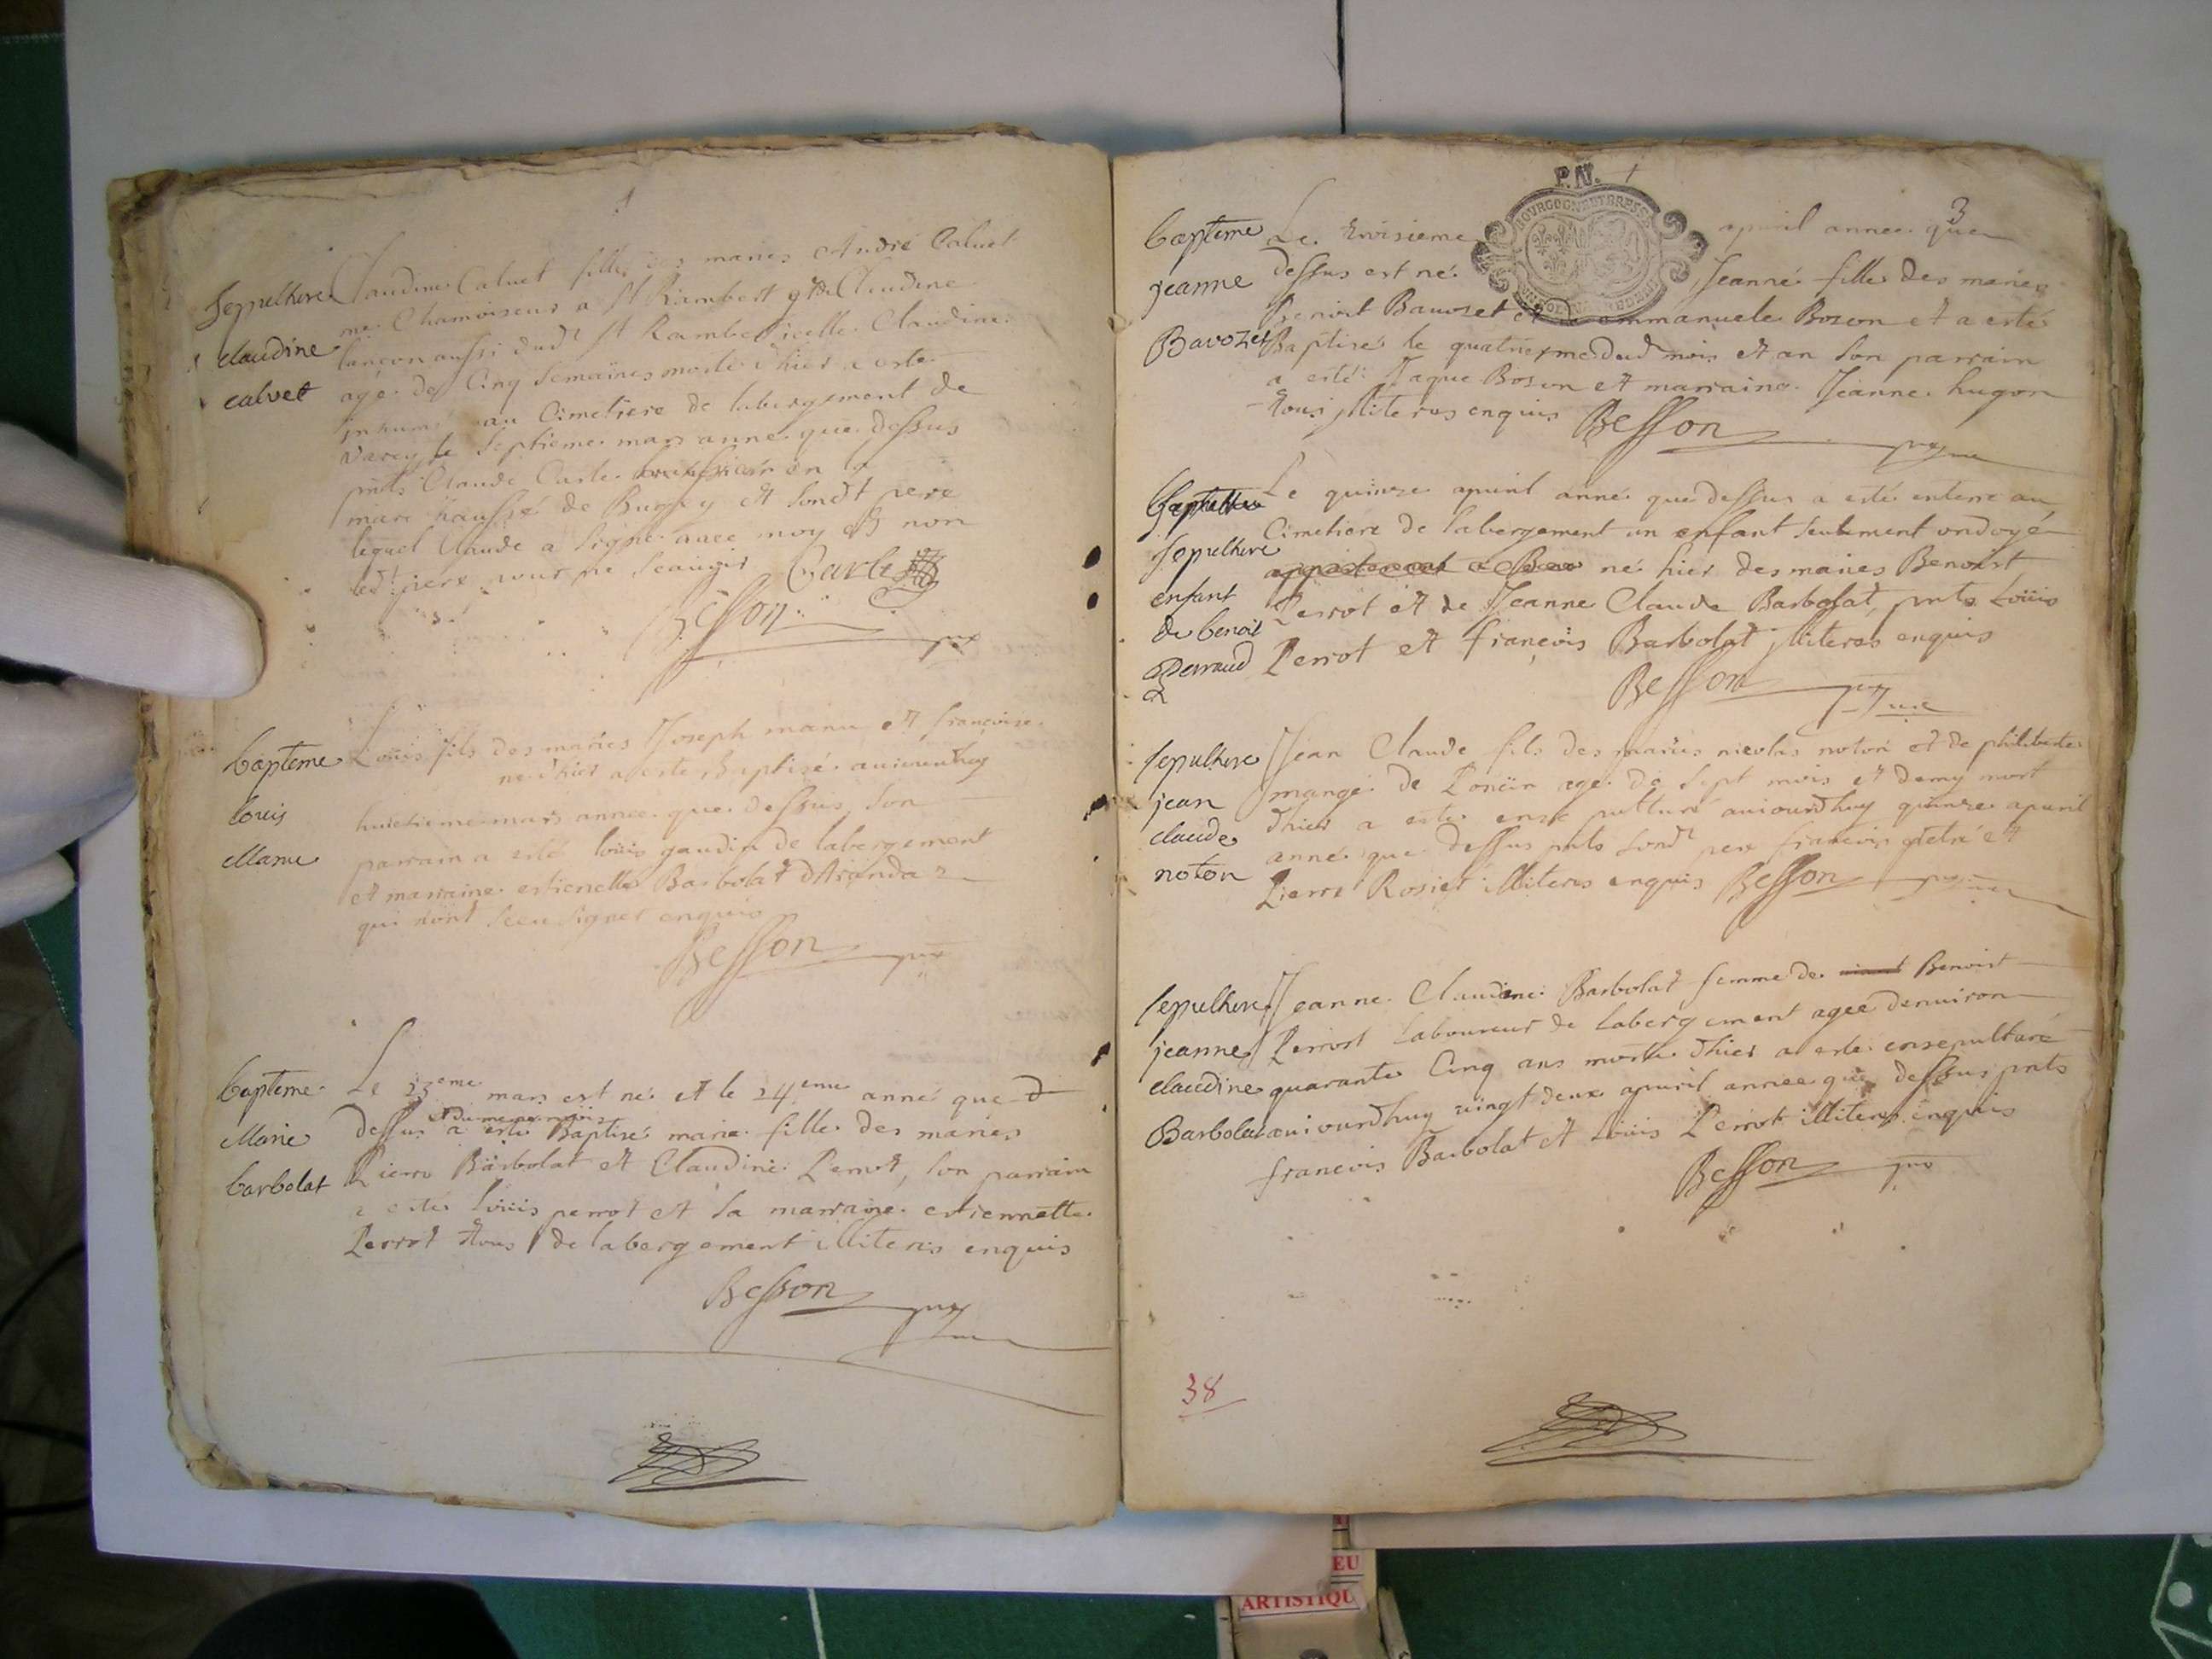 Sepulture
claudine
calvet
Claudine Caluet fille des maries André Caluet
me Chamoiseur a St Rambert et de Claudine
lançon aussi dudt St Rambert icelle Claudine
agé de Cinq semaines morte d'hier a esté
inhumé au Cimetiere de labergement de
Varey le septieme mars anné que dessus
pnts Claude Carle en la
mare chaussé de Bugey et sondt pere
lequel Claude a signé auec moy et non
ledt pere pour ne scauoir Carle
Besson
bapteme
louis
Manu
Loüis fils des mariés Joseph manu et françoise
né d'hier a esté Baptisé aujourdhuy
huictieme mars année que dessus, son
parrain a esté loüis gaudin de labergement
et marraine estienette Barbolat d'Aranda
qui n'ont sceu signer enquis
Besson
bapteme
Marie
barbolat
Le 23eme mars est né et le 24eme anné que d
et du meme mois
dessus a esté Baptisé marie fille des maries
Pierre Barbolat et Claudine Perrot, son parrain
a esté loüis perrot et la marraine estiennette
Perrot tous de labergement illiteres enquis
Besson
P.N.
BOURGOGNE ET BRESSE
3
bapteme
jeanne
Bavozet
Le troisieme apuril annee que
dessus est né Jeanne fille des maries
Benoist Bauozet et de emmanuele Bozon et a esté
Baptisé le quatriyme dudt mois et an son parrain
a esté Jaque Bozon et marraine Jeanne hugon
tous jlliteres enquis Besson
Sepulture
enfant
de benoit
Perraud
Le quinze apuril anné que dessus a esté enterré au
Cimetiere de labergement un enfant seulement ondoyé
appartenant a né hier des maries Benoist
Perrot et de Jeanne Claude Barbolat, pnts Loüis
Perrot et françois Barbolat jlliteres enquis
Besson
sepulture
jean
claude
noton
Jean Claude fils des mariés nicolas noton et de philiberte
mange de Poncin agé de sept mois et demy mort
d'hier a esté ensepulturé aujourdhuy quinze apuril
anné que dessus pnts sondt pere francois et
Pierre Rosier illiteres enquis Besson
sepulture
jeanne
claudine
Barbolat
Jeanne Claudine Barbolat femme de Benoist
Perrost Laboureur de labergement agée d'enuiron
quarante Cinq ans morte d'hier a esté ensepulturé
aujourdhuy vingt deux apuril annee que dessus pnts
francois Barbolat et Loüis Perrot illiteres enquis
Besson
38
EU
ARTISTIQU